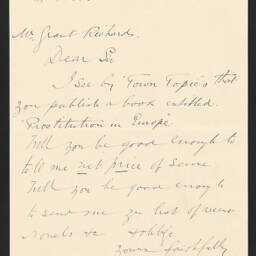 Mr Grant Richards.
Dear Sir
I see by "Town Topics that
you publish a book entitled
"Prostitution in Europe".
Will you be good enough to
tell me net price of same
Will you be good enough
to send me yr list of new
novels &c & oblige
Yours faithfully